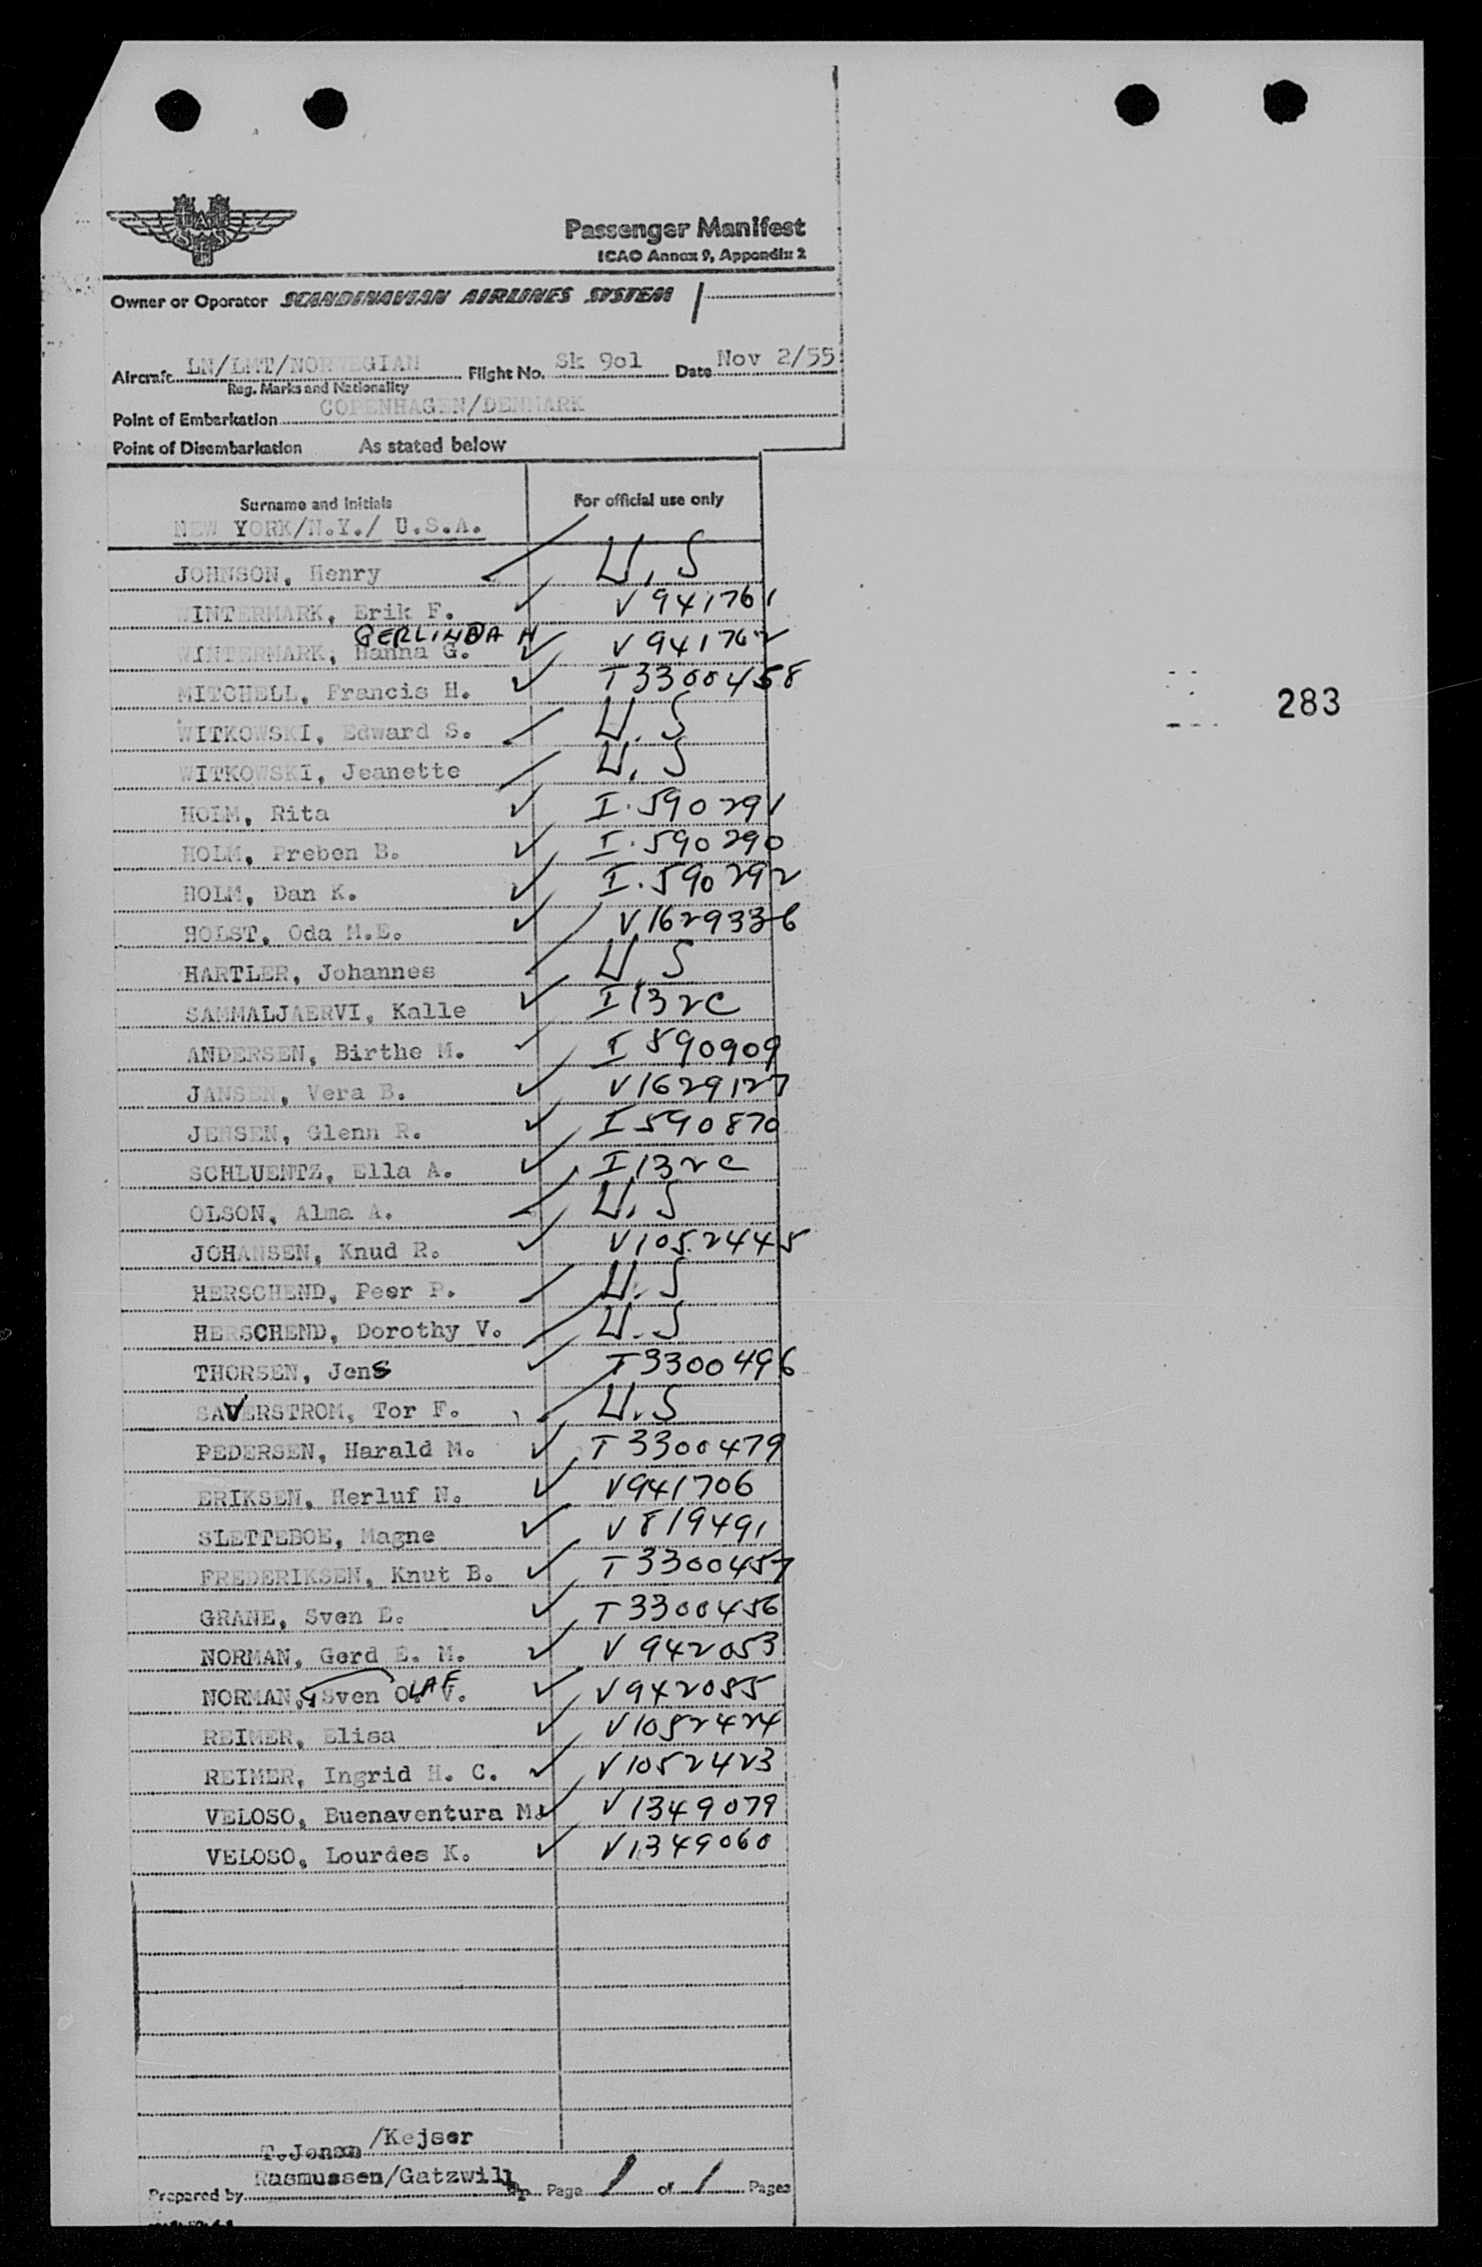 Passenger Manifest
ICAO Annex 9, Appendix 2
Owner or Operator SCANDINAVIAN AIRLINES SYSTEM
Aircraft LN/LMT/NORWEGIAN Flight No. Sk 901 Date Nov 2/55
Reg. Marks and Nationality
Point of Embarkation COPENHAGEN/DENMARK
Point of Disembarkation As stated below
Surname and Initials For official use only
NEW YORK/N.Y./ U.S.A.
JOHNSON, Henry U.S
WINTERMARK, Erik F. V941761
GERLINDA H
WINTERMARK, Hanna G. V941762
MITCHELL, Francis H. T3300458
WITKOWSKI, Edward S. U.S
WITKOWSKI, Jeanette U.S
283
HOLM, Rita I.590291
HOLM, Preben B. I.590290
HOLM, Dan K. I.590292
HOLST, Oda M.E. V1629336
HARTLER, Johannes U.S
SAMMALJAERVI, Kalle I132C
ANDERSEN, Birthe M. I590909
JANSEN, Vera B. V1629127
JENSEN, Glenn R. I590870
SCHLUENTZ, Ella A. I132C
OLSON, Alma A. U.S
JOHANSEN, Knud R. V1052445
HERSCHEND, Peer P. U.S
HERSCHEND, Dorothy V. U.S
THORSEN, Jens T3300496
SAVERSTROM, Tor F. U.S
PEDERSEN, Harald M. T3300479
ERIKSEN, Herluf N. V941706
SLETTEBOE, Magne V819491
FREDERIKSEN, Knut B. T3300457
GRANE, Sven E. T3300456
NORMAN, Gerd E. M. V942053
NORMAN, Sven OLAF V. V942055
REIMER, Elisa V1052424
REIMER, Ingrid H. C. V1052423
VELOSO, Buenaventura M. V1349079
VELOSO, Lourdes K. V1349060
T.Jensen/Kejser
Rasmussen/Gatzwill
Prepared by Page 1 of 1 Pages